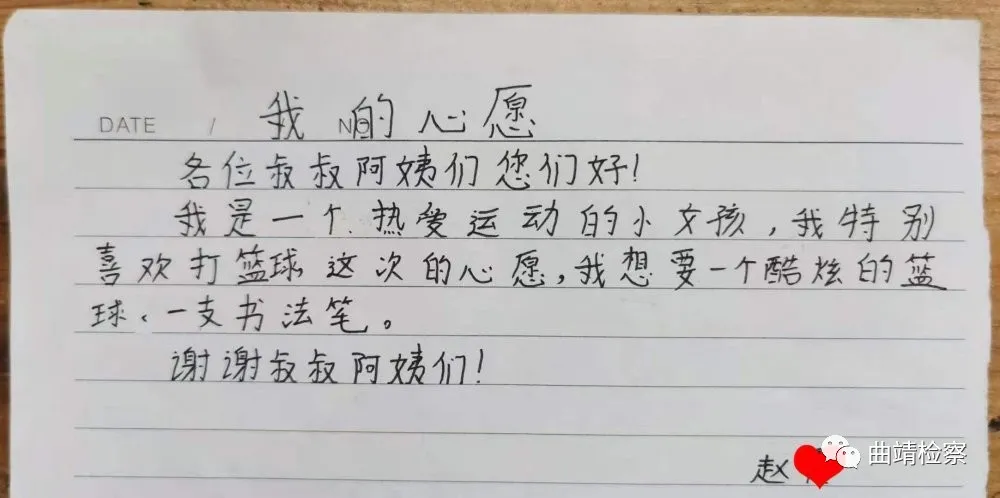 DATE / NO
我的心愿
各位叔叔阿姨们您们好!
我是一个热爱运动的小女孩,我特别
喜欢打篮球 这次的心愿,我想要一个酷炫的蓝
球、一支书法笔。
谢谢叔叔阿姨们!
赵
曲靖检察